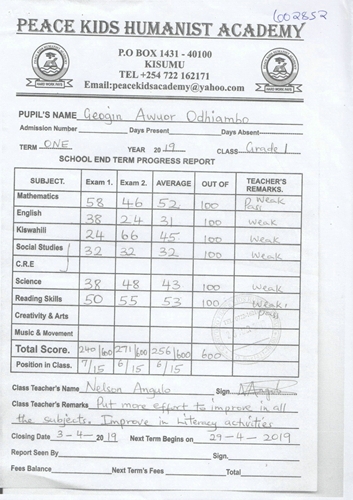 6002852
PEACE KIDS HUMANIST ACADEMY
P.O BOX 1431 - 40100
KISUMU
TEL +254 722 162171
Email:peacekidsacademy@yahoo.com
PUPIL'S NAME Geogin Awuor Odhiambo
Admission Number Days Present Days Absent
TERM ONE YEAR 2019 CLASS Grade 1
SCHOOL END TERM PROGRESS REPORT
SUBJECT. Exam 1. Exam 2. AVERAGE OUT OF TEACHER'S REMARKS.
Mathematics 58 46 52 100 weak Pass
English 38 24 31 100 weak
Kiswahili 24 66 45. 100 weak
Social Studies 32 32 32 100 weak
C.R.E
Science 38 48 43 100 weak
Reading Skills 50 55 53 100 weak
Creativity & Arts
Music & Movement
Total Score. 240/600 271/600 256/600 600
Position in Class. 7/15 6/15 6/15
Class Teacher's Name Nelson Angulo Sign. NAngulo
Class Teacher's Remarks Put more effort to improve in all
the subjects. Improve in literacy activities
Closing Date 3-4- 2019 Next Term Begins on 29-4-2019
Report Seen By Sign.
Fees Balance Next Term's Fees Total